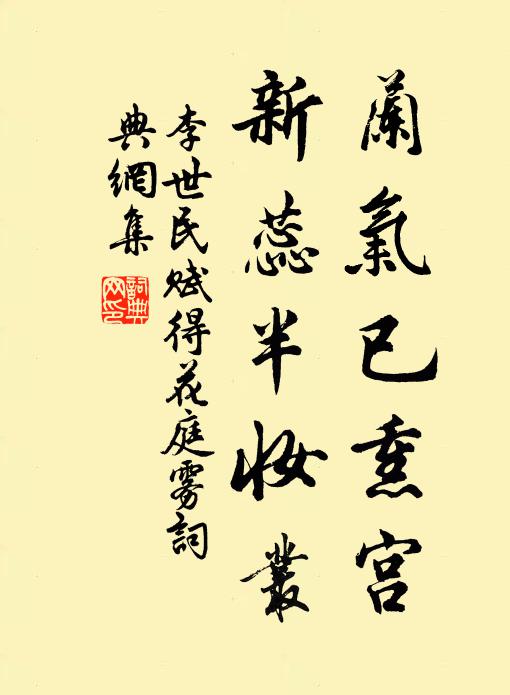 蘭氣已熏宮
新蕊半妝叢
李世民賦得花庭雾詞
典網集
詞典
网印